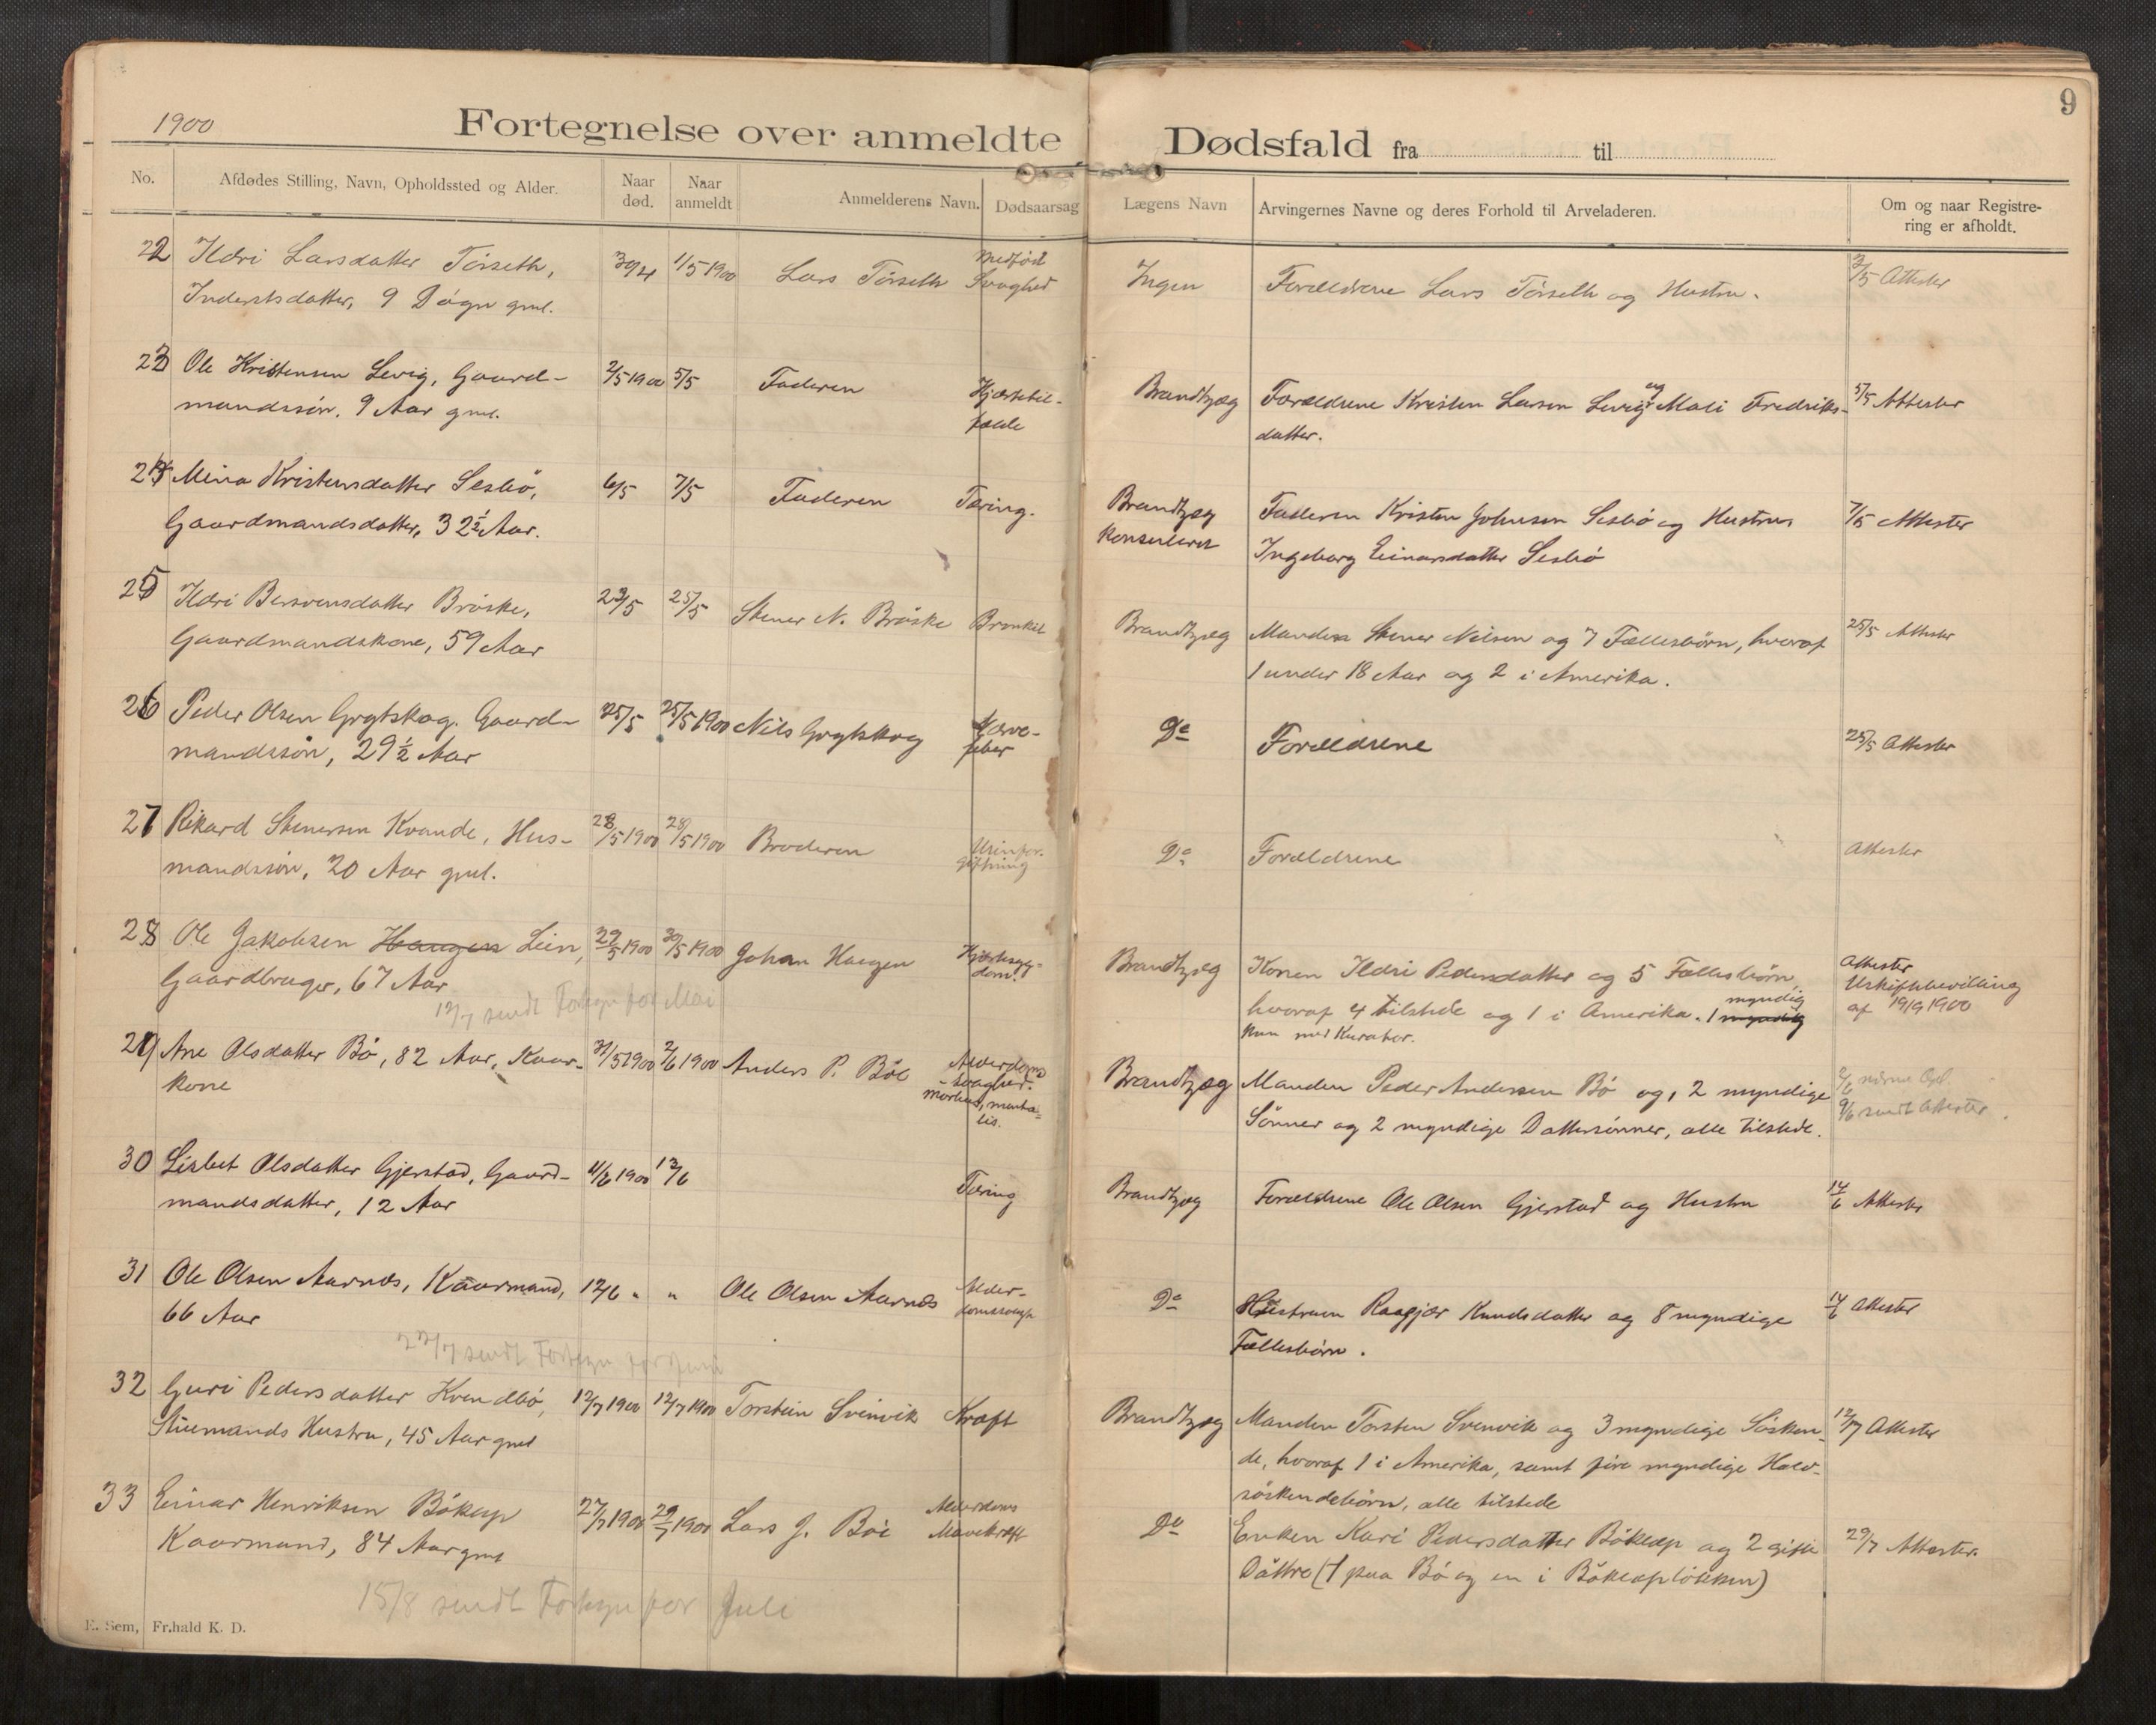 1900
Fortegnelse over anmeldte Dødsfald fra til
9
No. Afdødes Stilling, Navn, Opholdssted og Alder. Naar død. Naar anmeldt Anmelderens Navn. Dødsaarsag Lægens Navn Arvingernes Navne og deres Forhold til Arveladeren. Om og naar Registrering er afholdt.
22 Ildri Larsdatter Törseth, 30/4 1/5 1900 Lars Törseth Medfödt Svaghed Ingen Forældrene Lars Törseth og Hustru. 2/5 Attester
Inderstsdatter, 9 Dögn gml.
23 Ole Kristensen Levig, Gaard- 2/5 1900 5/5 Faderen Hjertetil- Brandtzæg Forældrene Kristen Larsen Levig og Mali Fredriks- 5/5 Attester
mandssön, 9 Aar gml. fælde datter.
24 Mina Kristensdatter Sesbö, 6/5 7/5 Faderen Tæring. Brandtzæg Faderen Kristen Johnsen Sesbö og Hustru 7/5 Attester
Gaardmandsdatter, 32 1/2 Aar. konsuleret Ingeborg Einarsdatter Sesbö
25 Ildri Bersvensdatter Bröske, 23/5 25/5 Stener N. Bröske Bronkit Brandtzæg Manden Stener Nilsen og 7 Fællesbörn, hvoraf 25/5 Attester
Gaardmandskone, 59 Aar 1 under 18 Aar og 2 i Amerika.
26 Peder Olsen Grytskog. Gaard- 25/5 25/5 1900 Nils Grytskog Nerve- Do Forældrene 25/5 Attester
mandssön, 29 1/2 Aar feber
27 Rikard Stenersen Kvande, Hus- 28/5 1900 28/5 1900 Broderen Urinfor- Do Forældrene Attester
mandssön, 20 Aar gml. giftning
28 Ole Jakobsen Haugen Lein, 29/5 1900 30/5 1900 Johan Haugen Hjertesyg- Brandtzæg Konen Ildri Pedersdatter og 5 Fællesbörn, Attester
Gaardbruger, 67 Aar dom. hvoraf 4 tilstede og 1 i Amerika. 1 myndig myndig Uskiftebevilling
12/7 sendt Fortegn for Mai kun med Kurator. af 19/9 1900
29 Ane Olsdatter Bö, 82 Aar, Kaar- 31/5 1900 2/6 1900 Anders P. Böe Alderdoms Brandtzæg Manden Peder Andersen Bö og, 2 myndige
kone svaghed. Sönner og 2 myndige Dattersönner, alle tilstede. 9/6 sendt Attester.
30 Lisbet Olsdatter Gjerstad, Gaard- 11/6 1900 12/6 Tæring Brandtzæg Forældrene Ole Olsen Gjerstad og Hustru 14/6 Attester
mandsdatter, 12 Aar
31 Ole Olsen Aarnes, Kaarmand, 12/6 " " Ole Olsen Aarnes Alder- Do Hustruen Knudsdatter og 8 myndige 14/6 Attester
66 Aar domssvagh Fællesbörn.
23/7 sendt Fortegn for Juni
32 Guri Pedersdatter Kvendbö, 12/7 1900 12/7 1900 Torstein Svinvik Kræft Brandtzæg Manden Torsten Svenvik og 3 myndige Sösken- 12/7 Attester
Stuemands Hustru, 45 Aar gml de, hvoraf 1 i Amerika, samt fire myndige Halv-
söskendebörn, alle tilstede
33 Einar Henriksen Böklep 27/7 1900 29/7 1900 Lars J. Böe Alderdoms Do Enken Kari Pedersdatter Böklep og 2 gifte 29/7 Attester.
Kaarmand, 84 Aar gml Mavekræft Döttre (1 paa Bö og en i Bökleplökken)
15/8 sendt Fortegn for Juli
E. Sem, Fr.hald K. D.